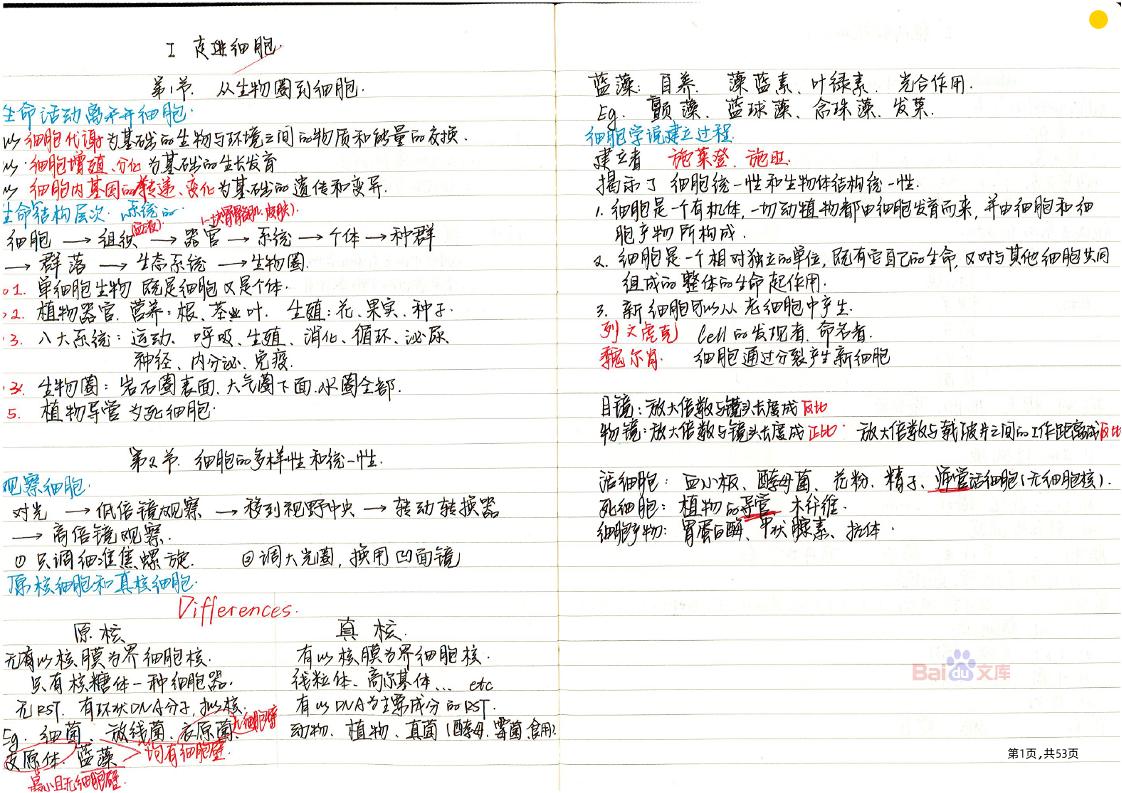 I 走进细胞.
第1节. 从生物圈到细胞.
生命活动离不开细胞.
以细胞代谢为基础的生物与环境之间的物质和能量的交换.
以细胞增殖、分化为基础的生长发育
以细胞内基因的传递、变化为基础的遗传和变异.
生命结构层次. 系统的
(血液) (一块骨骼肌、皮肤).
细胞 → 组织 → 器官 → 系统 → 个体 → 种群
→ 群落 → 生态系统 → 生物圈.
1. 单细胞生物 既是细胞又是个体.
2. 植物器官. 营养:根、茎、叶. 生殖:花、果实、种子.
3. 八大系统:运动、呼吸、生殖、消化、循环、泌尿
神经、内分泌、免疫.
生物圈:岩石圈表面、大气圈下面、水圈全部.
5. 植物导管为死细胞.
第2节. 细胞的多样性和统一性.
观察细胞.
对光 → 低倍镜观察 → 移到视野中央 → 转动转换器
→ 高倍镜观察.
① 只调细准焦螺旋. ②调大光圈,换用凹面镜
原核细胞和真核细胞.
Differences.
原核 真核.
无有以核膜为界细胞核. 有以核膜为界细胞核.
只有核糖体一种细胞器. 线粒体、高尔基体... etc
无RST. 有环状DNA分子,拟核. 有以DNA为主要成分的RST.
Eg. 细菌、放线菌、衣原菌 无细胞壁 动物、植物、真菌(酵母、霉菌、食用)
支原体、蓝藻 均有细胞壁.
最小且无细胞壁.
蓝藻: 自养. 藻蓝素、叶绿素. 光合作用.
Eg. 颤藻、蓝球藻、念珠藻、发菜.
细胞学说建立过程.
建立者 施莱登、施旺.
揭示了 细胞统一性和生物体结构统一性.
1. 细胞是一个有机体,一切动植物都由细胞发育而来,并由细胞和细
胞产物所构成.
2. 细胞是一个相对独立的单位,既有它自己的生命,又对与其他细胞共同
组成的整体的生命起作用.
3. 新细胞可以从老细胞中产生.
列文虎克 Cell的发现者、命名者.
魏尔肖. 细胞通过分裂产生新细胞
目镜:放大倍数与镜头长度成反比
物镜:放大倍数与镜头长度成正比. 放大倍数与载玻片之间的工作距离成反比
活细胞: 血小板、酵母菌、花粉、精子、筛管活细胞(无细胞核).
死细胞: 植物的导管、木纤维.
细胞产物: 胃蛋白酶、甲状腺素、抗体.
Baidu文库
第1页,共53页